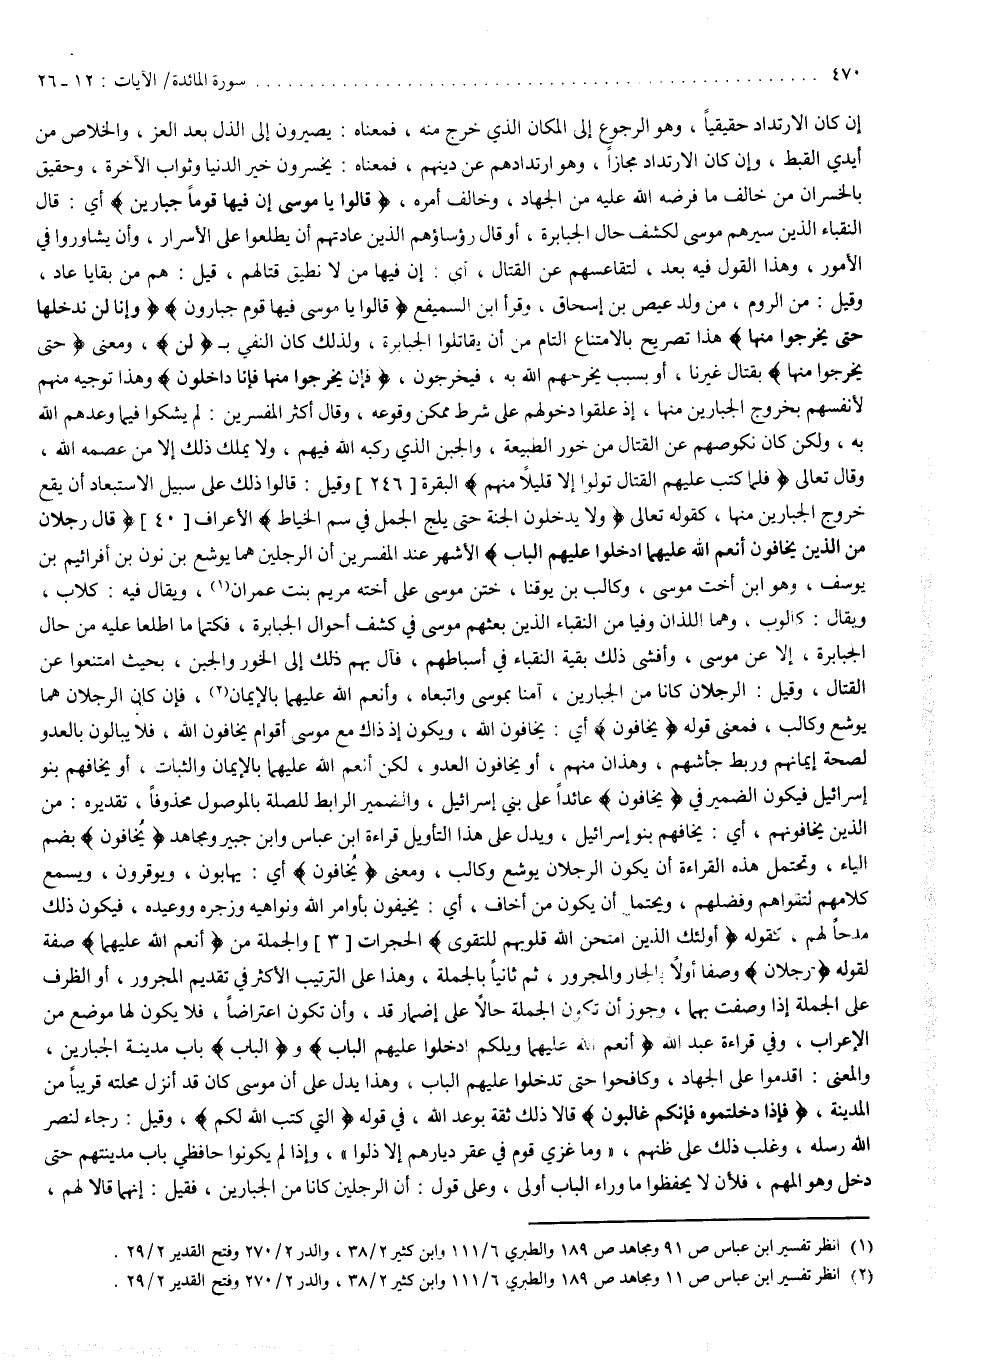 ٤٧٠ ........ سورة المائدة/ الآيات : ١٢ ـ ٢٦
إن كان الارتداد حقيقياً ، وهو الرجوع إلى المكان الذي خرج منه ، فمعناه : يصيرون إلى الذل بعد العز ، والخلاص من
أيدي القبط ، وإن كان الارتداد مجازاً ، وهو ارتدادهم عن دينهم ، فمعناه : يخسرون خير الدنيا وثواب الآخرة ، وحقيق
بالخسران من خالف ما فرضه الله عليه من الجهاد ، وخالف أمره ، ﴿ قالوا يا موسى إن فيها قوماً جبارين ﴾ أي : قال
النقباء الذين سيرهم موسى لكشف حال الجبابرة ، أو قال رؤساؤهم الذين عادتهم أن يطلعوا على الأسرار ، وأن يشاوروا في
الأمور ، وهذا القول فيه بعد ، لتقاعسهم عن القتال ، أي : إن فيها من لا نطيق قتالهم ، قيل : هم من بقايا عاد ،
وقيل : من الروم ، من ولد عيص بن إسحاق ، وقرأ ابن السميفع ﴿ قالوا يا موسى فيها قوم جبارون ﴾ ﴿ وإنا لن ندخلها
حتى يخرجوا منها ﴾ هذا تصريح بالامتناع التام من أن يقاتلوا الجبابرة ، ولذلك كان النفي بـ ﴿ لن ﴾ ، ومعنى ﴿ حتى
يخرجوا منها ﴾ بقتال غيرنا ، أو بسبب يخرجهم الله به ، فيخرجون ، ﴿ فإن يخرجوا منها فإنا داخلون ﴾ وهذا توجيه منهم
لأنفسهم بخروج الجبارين منها ، إذ علقوا دخولهم على شرط ممكن وقوعه ، وقال أكثر المفسرين : لم يشكوا فيما وعدهم الله
به ، ولكن كان نكوصهم عن القتال من خور الطبيعة ، والجبن الذي ركبه الله فيهم ، ولا يملك ذلك إلا من عصمه الله ،
وقال تعالى ﴿ فلما كتب عليهم القتال تولوا إلا قليلاً منهم ﴾ البقرة [ ٢٤٦ ] وقيل : قالوا ذلك على سبيل الاستبعاد أن يقع
خروج الجبارين منها ، كقوله تعالى ﴿ ولا يدخلون الجنة حتى يلج الجمل في سم الخياط ﴾ الأعراف [ ٤٠ ] ﴿ قال رجلان
من الذين يخافون أنعم الله عليهما ادخلوا عليهم الباب ﴾ الأشهر عند المفسرين أن الرجلين هما يوشع بن نون بن أفرائيم بن
يوسف ، وهو ابن أخت موسى ، وكالب بن يوقنا ، ختن موسى على أخته مريم بنت عمران(١) ، ويقال فيه : كلاب ،
ويقال : كالوب ، وهما اللذان وفيا من النقباء الذين بعثهم موسى في كشف أحوال الجبابرة ، فكتما ما اطلعا عليه من حال
الجبابرة ، إلا عن موسى ، وأفشى ذلك بقية النقباء في أسباطهم ، فآل بهم ذلك إلى الخور والجبن ، بحيث امتنعوا عن
القتال ، وقيل : الرجلان كانا من الجبارين ، آمنا بموسى واتبعاه ، وأنعم الله عليهما بالإيمان(٢) ، فإن كان الرجلان هما
يوشع وكالب ، فمعنى قوله ﴿ يخافون ﴾ أي : يخافون الله ، ويكون إذ ذاك مع موسى أقوام يخافون الله ، فلا يبالون بالعدو
لصحة إيمانهم وربط جأشهم ، وهذان منهم ، أو يخافون العدو ، لكن أنعم الله عليهما بالإيمان والثبات ، أو يخافهم بنو
إسرائيل فيكون الضمير في ﴿ يخافون ﴾ عائداً على بني إسرائيل ، والضمير الرابط للصلة بالموصول محذوفاً ، تقديره : من
الذين يخافونهم ، أي : يخافهم بنو إسرائيل ، ويدل على هذا التأويل قراءة ابن عباس وابن جبير ومجاهد ﴿ يُخافون ﴾ بضم
الياء ، وتحتمل هذه القراءة أن يكون الرجلان يوشع وكالب ، ومعنى ﴿ يُخافون ﴾ أي : يهابون ، ويوقرون ، ويسمع
كلامهم لتقواهم وفضلهم ، ويحتمل أن يكون من أخاف ، أي : يخيفون بأوامر الله ونواهيه وزجره ووعيده ، فيكون ذلك
مدحاً لهم ، كقوله ﴿ أولئك الذين امتحن الله قلوبهم للتقوى ﴾ الحجرات [ ٣ ] والجملة من ﴿ أنعم الله عليهما ﴾ صفة
لقوله ﴿ رجلان ﴾ وصفا أولاً بالجار والمجرور ، ثم ثانياً بالجملة ، وهذا على الترتيب الأكثر في تقديم المجرور ، أو الظرف
على الجملة إذا وصفت بهما ، وجوز أن تكون الجملة حالاً على إضمار قد ، وأن تكون اعتراضاً ، فلا يكون لها موضع من
الإعراب ، وفي قراءة عبد الله ﴿ أنعم الله عليهما ويلكم ادخلوا عليهم الباب ﴾ و ﴿ الباب ﴾ باب مدينة الجبارين ،
والمعنى : اقدموا على الجهاد ، وكافحوا حتى تدخلوا عليهم الباب ، وهذا يدل على أن موسى كان قد أنزل محلته قريباً من
المدينة ، ﴿ فإذا دخلتموه فإنكم غالبون ﴾ قالا ذلك ثقة بوعد الله ، في قوله ﴿ التي كتب الله لكم ﴾ ، وقيل : رجاء لنصر
الله رسله ، وغلب ذلك على ظنهم ، « وما غزي قوم في عقر ديارهم إلا ذلوا » ، وإذا لم يكونوا حافظي باب مدينتهم حتى
دخل وهو المهم ، فلأن لا يحفظوا ما وراء الباب أولى ، وعلى قول : أن الرجلين كانا من الجبارين ، فقيل : إنهما قالا لهم ،
(١) انظر تفسير ابن عباس ص ٩١ ومجاهد ص ١٨٩ والطبري ١١١/٦ وابن كثير ٣٨/٢ ، والدر ٢٧٠/٢ وفتح القدير ٢٩/٢ .
(٢) انظر تفسير ابن عباس ص ١١ ومجاهد ص ١٨٩ والطبري ١١١/٦ وابن كثير ٣٨/٢ ، والدر ٢٧٠/٢ وفتح القدير ٢٩/٢ .